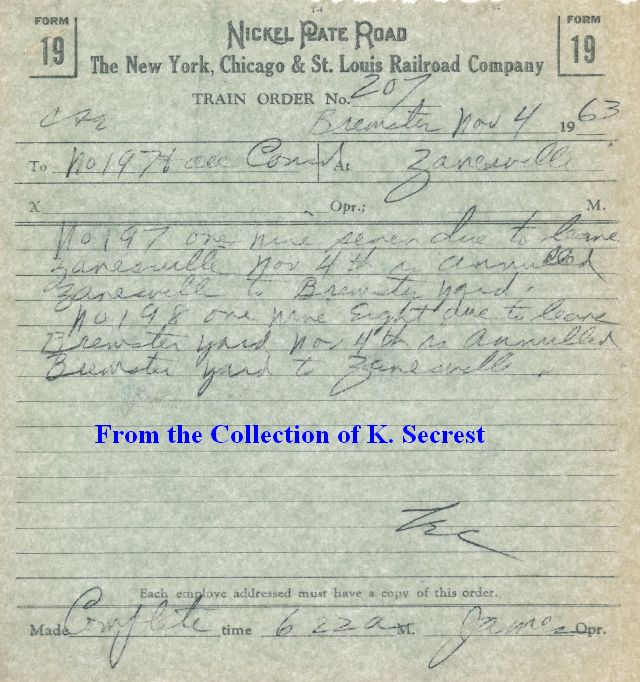 FORM 19
NICKEL PLATE ROAD
FORM 19
The New York, Chicago & St. Louis Railroad Company
TRAIN ORDER No. 207
Brewster Nov 4 1963
To No 197 & all Concd At Zanesville
X Opr.; M.
No 197 one nine seven due to leave
Zanesville Nov 4th is annulled
Zanesville to Brewster yard.
No 198 one nine Eight due to leave
Brewster yard Nov 4th is Annulled
Brewster yard to Zanesville.
From the Collection of K. Secrest
Each employe addressed must have a copy of this order.
Made Complete time 6 22 a M. James Opr.